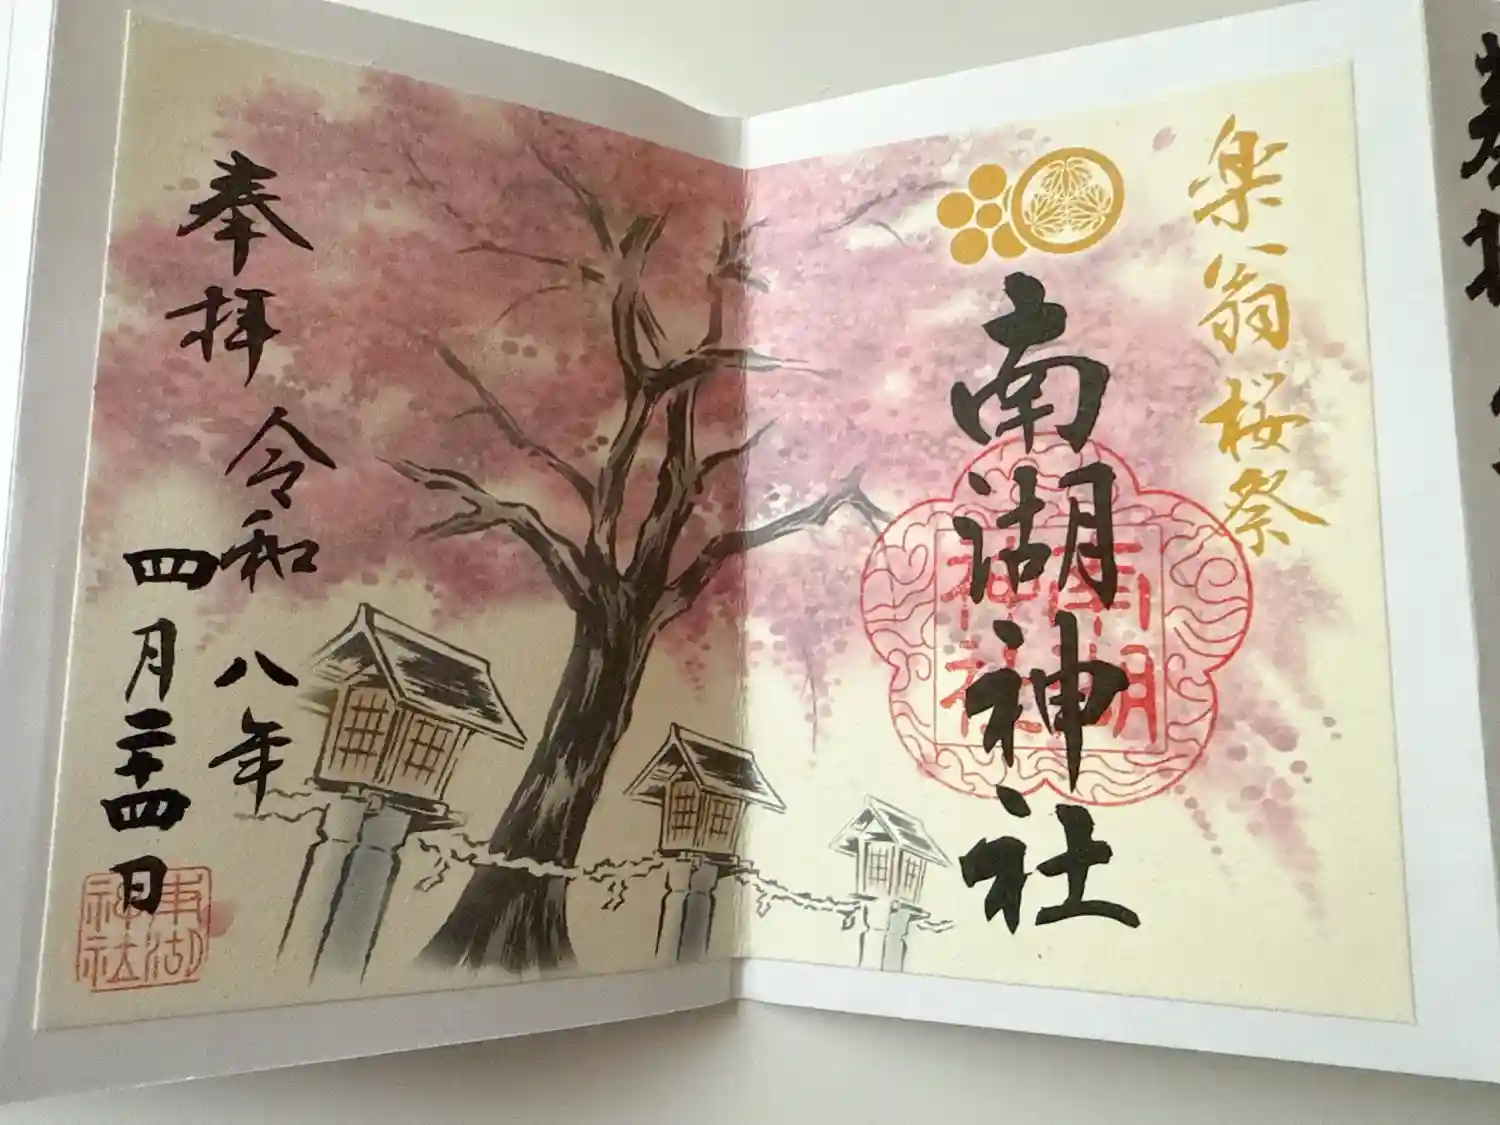 楽翁桜祭
南湖神社
南湖
神社
奉拝
令和八年
四月二十四日
南湖
神社